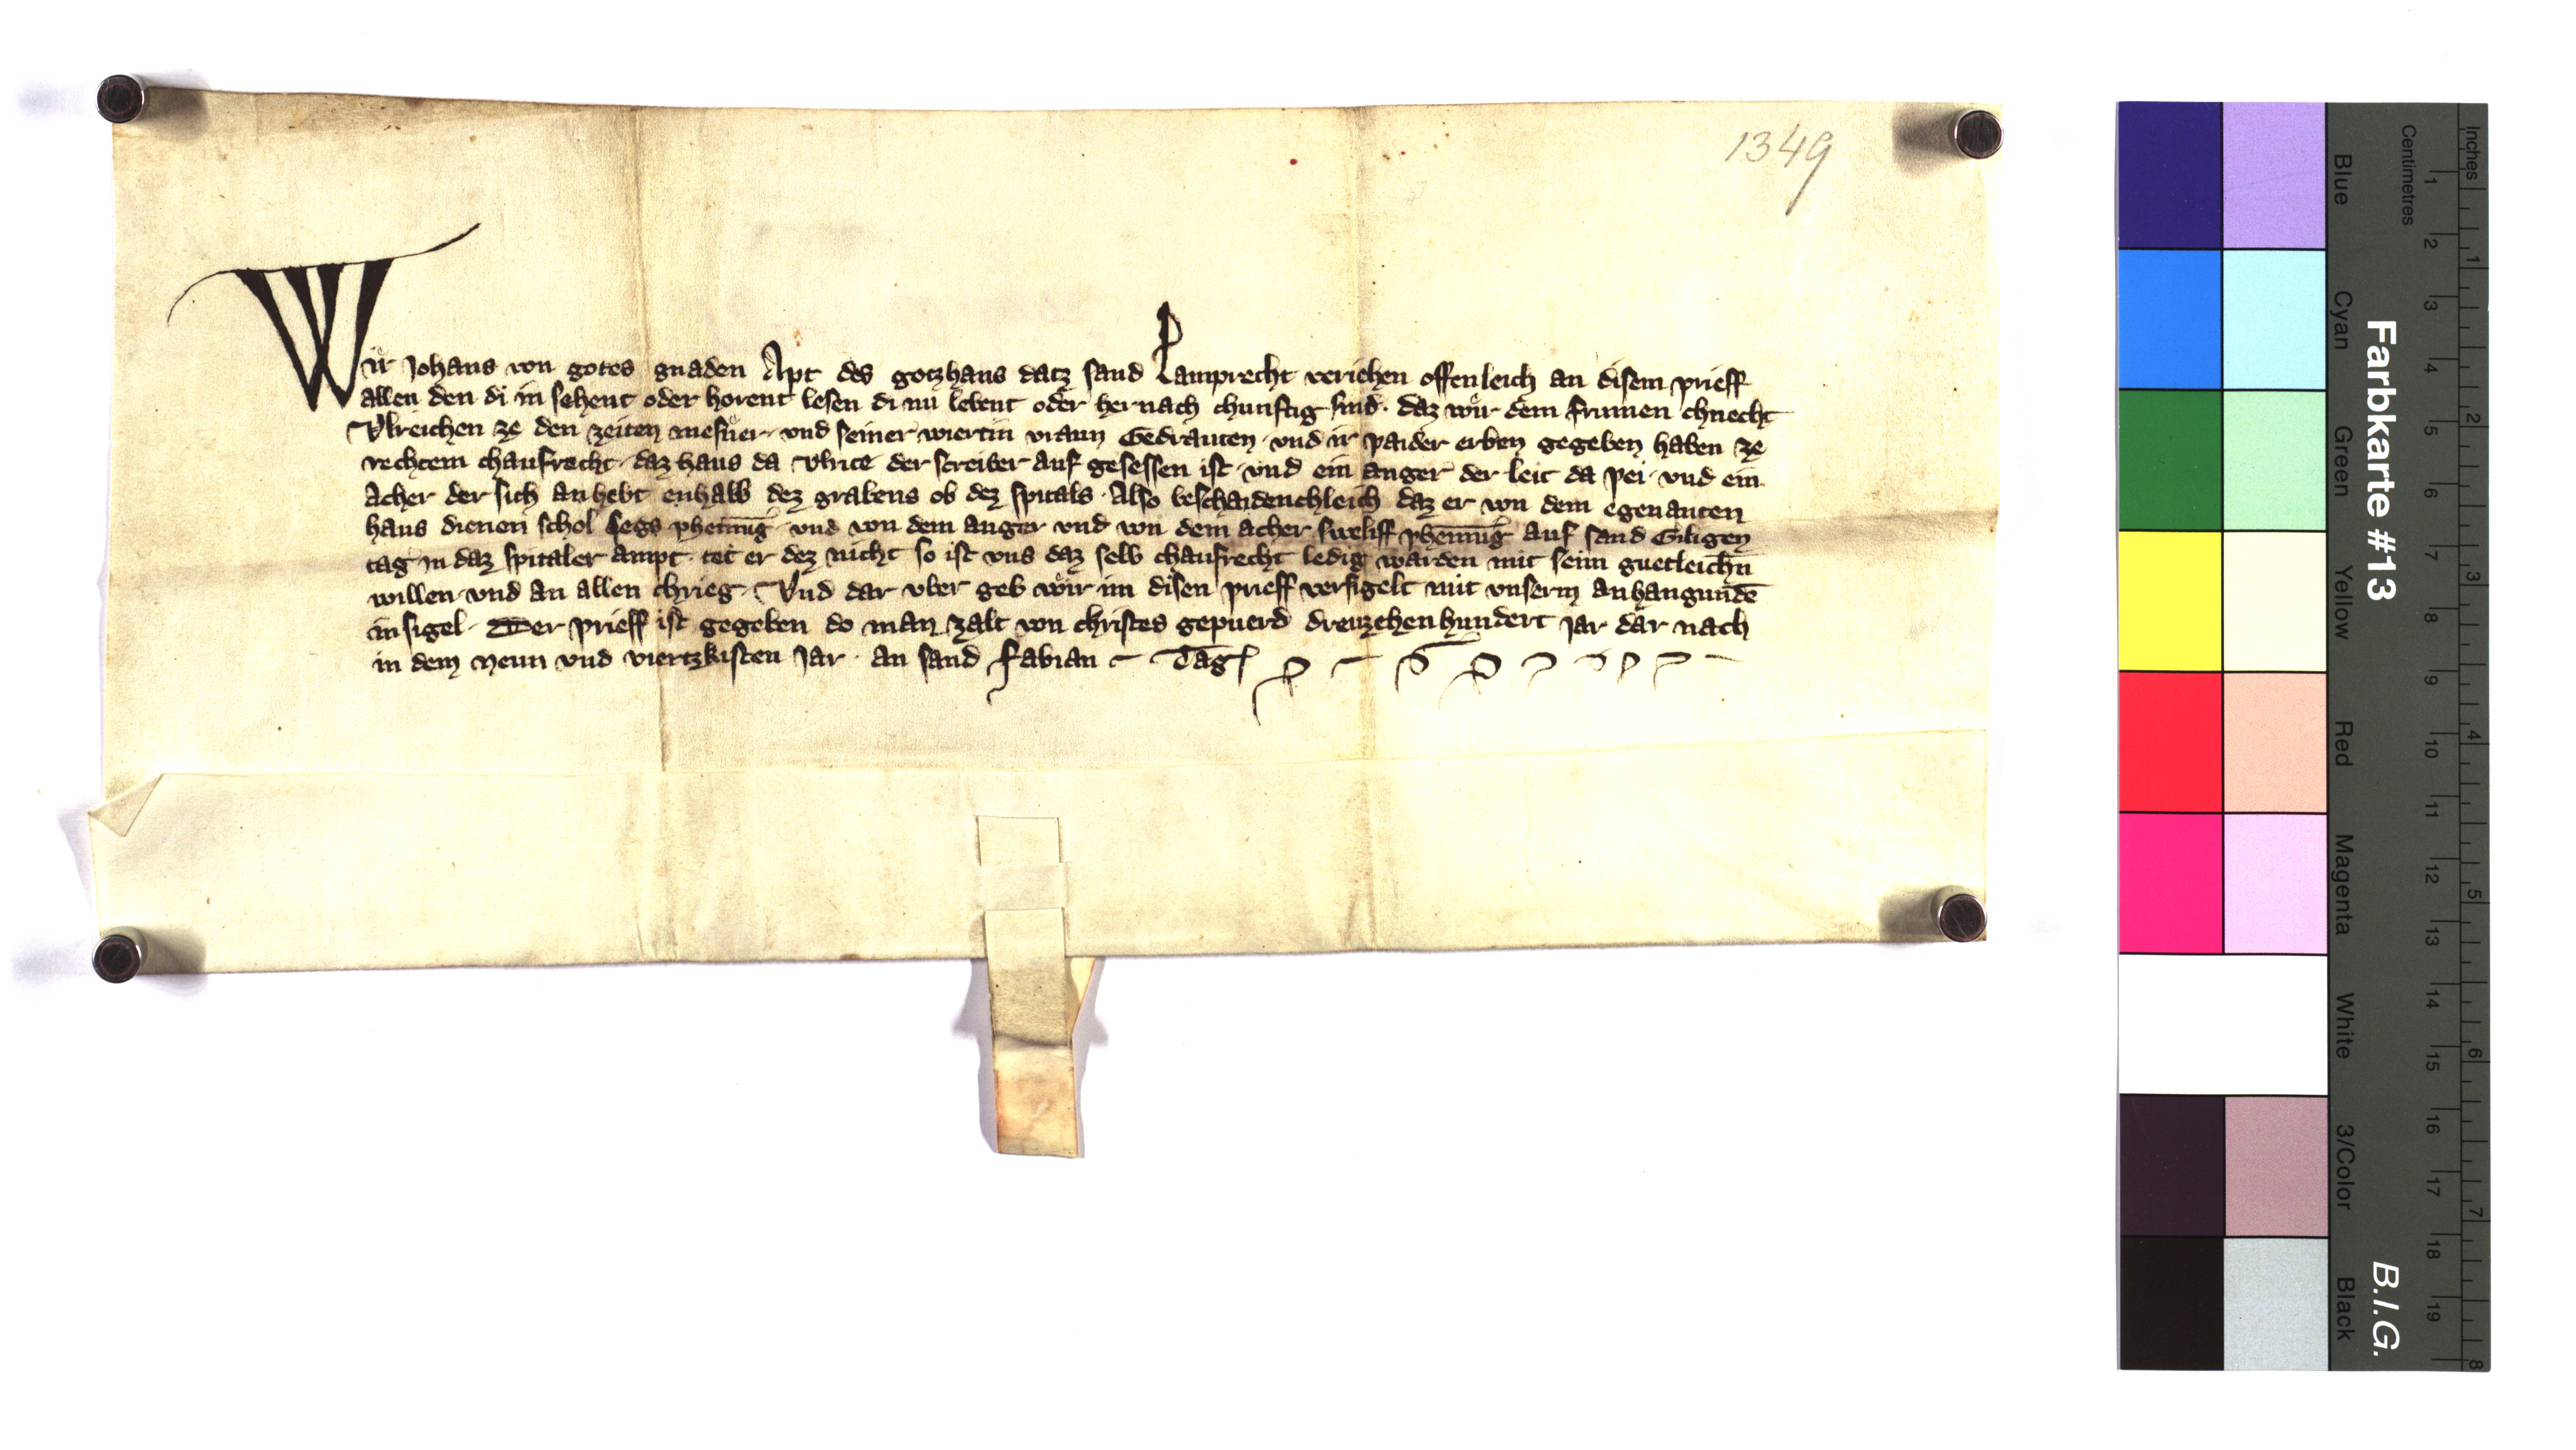 1349
Wir Johans von gotes gnaden Apt des gotzhaus datz sand Lamprecht veriehen offenleich an disem prieff
allen den di in sehent oder horent lesen di nu lebent oder hernach chunftig sind · daz wir dem frumen chnecht
Vlreichen ze den zeiten mesner · vnd seiner wiertin vraun Gedrauten · vnd ir paider erben gegeben haben ze
rechtem chaufrecht · daz haus da Vlrice der screiber auf gesessen ist · vnd ein anger der leit da pei · vnd ein
acher der sich anhebt enhalb dez grabens ob dez spitals · Also beschaidenchleich daz er von dem egenanten
haus dienen schol segs phennig · vnd von dem anger vnd von dem acher sweliff phennig auf sand Giligen
tag in daz spitaler ampt · tet er dez nicht so ist vns daz selb chaufrecht ledig warden mit seim guetleichn
willen · vnd an allen chrieg · Vnd dar vber geb wir im disen prieff versigelt mit vnserm anhangundē
insigel · Der prieff ist gegeben do man zalt von christes gepuerd dreuzehenhundert jar dar nach
in dem neun vnd viertzkisten Jar · an sand Fabian Tag
Farbkarte #13
B.I.G.
Blue
Cyan
Green
Yellow
Red
Magenta
White
3/Color
Black
Centimetres
1 2 3 4 5 6 7 8 9 10 11 12 13 14 15 16 17 18 19
Inches
1 2 3 4 5 6 7 8